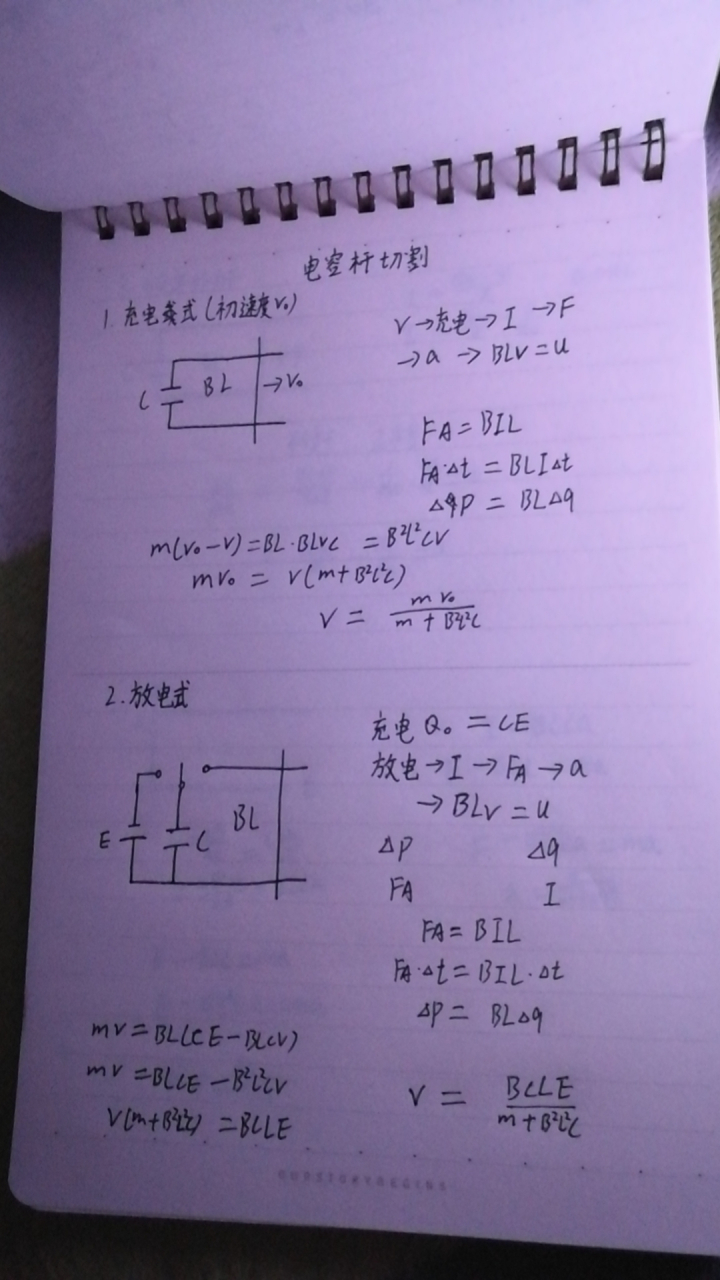 电容杆切割
1. 充电类式(初速度v₀)
V→充电→I→F
→a→BLV=u
C BL →V₀
FA=BIL
FA·Δt=BLIΔt
ΔP=BLΔq
m(v₀-v)=BL·BLVC=B²L²CV
mv₀=v(m+B²L²C)
V=mv₀/(m+B²L²C)
2.放电式
充电Q₀=CE
放电→I→FA→a
→BLv=u
E C BL
ΔP Δq
FA I
FA=BIL
FA·Δt=BIL·Δt
ΔP=BLΔq
mv=BL(CE-BLCV)
mv=BLCE-B²L²CV
V(m+B²L²C)=BCLE
V=BCLE/(m+B²L²C)